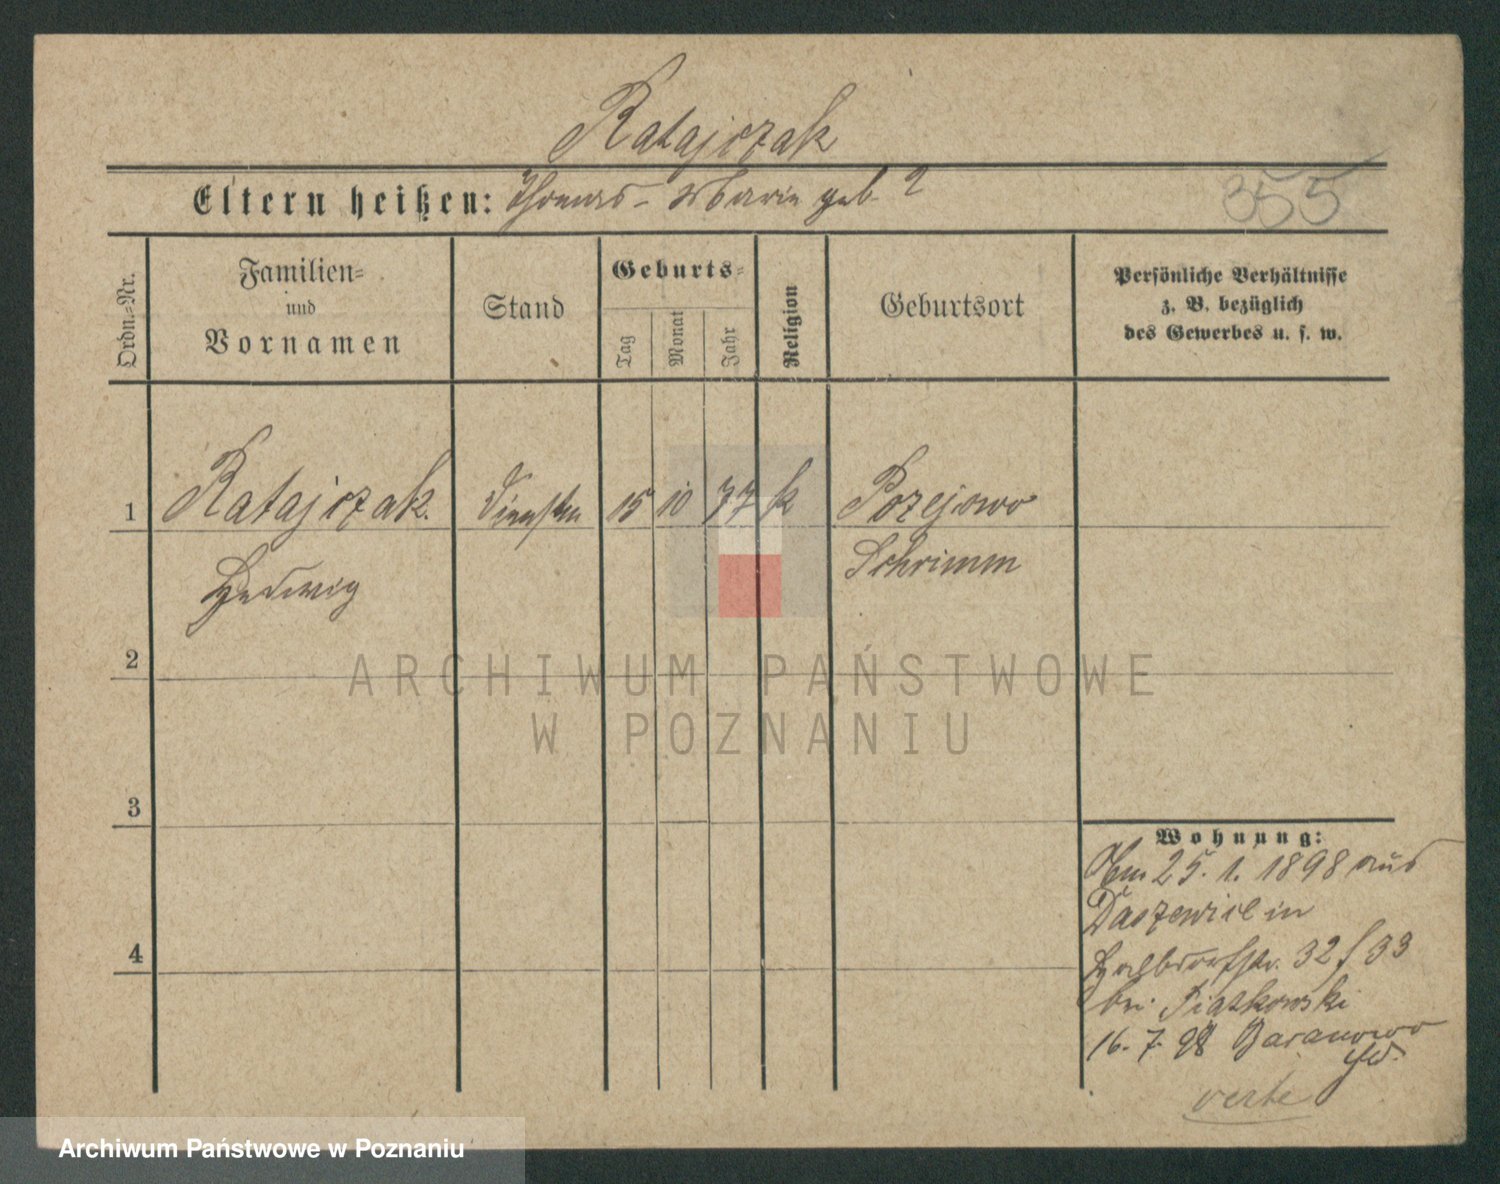 Ratajczak
Eltern heißen: Thomas - Marie geb. ?
355
Ordn.-Nr.
Familien-
und
Vornamen
Stand
Geburts-
Tag
Monat
Jahr
Religion
Geburtsort
Persönliche Verhältnisse
z. B. bezüglich
des Gewerbes u. s. w.
1
Ratajczak.
15 10 77 k
Pozejowo
Hedwig
Schrimm
2
3
4
Wohnung:
Am 25. 1. 1898 aus
Daszewice in
Halbdorfstr. 32/33
bei Piatkowski
16. 7. 98 Baranowo
verte
ARCHIWUM PAŃSTWOWE
W POZNANIU
Archiwum Państwowe w Poznaniu